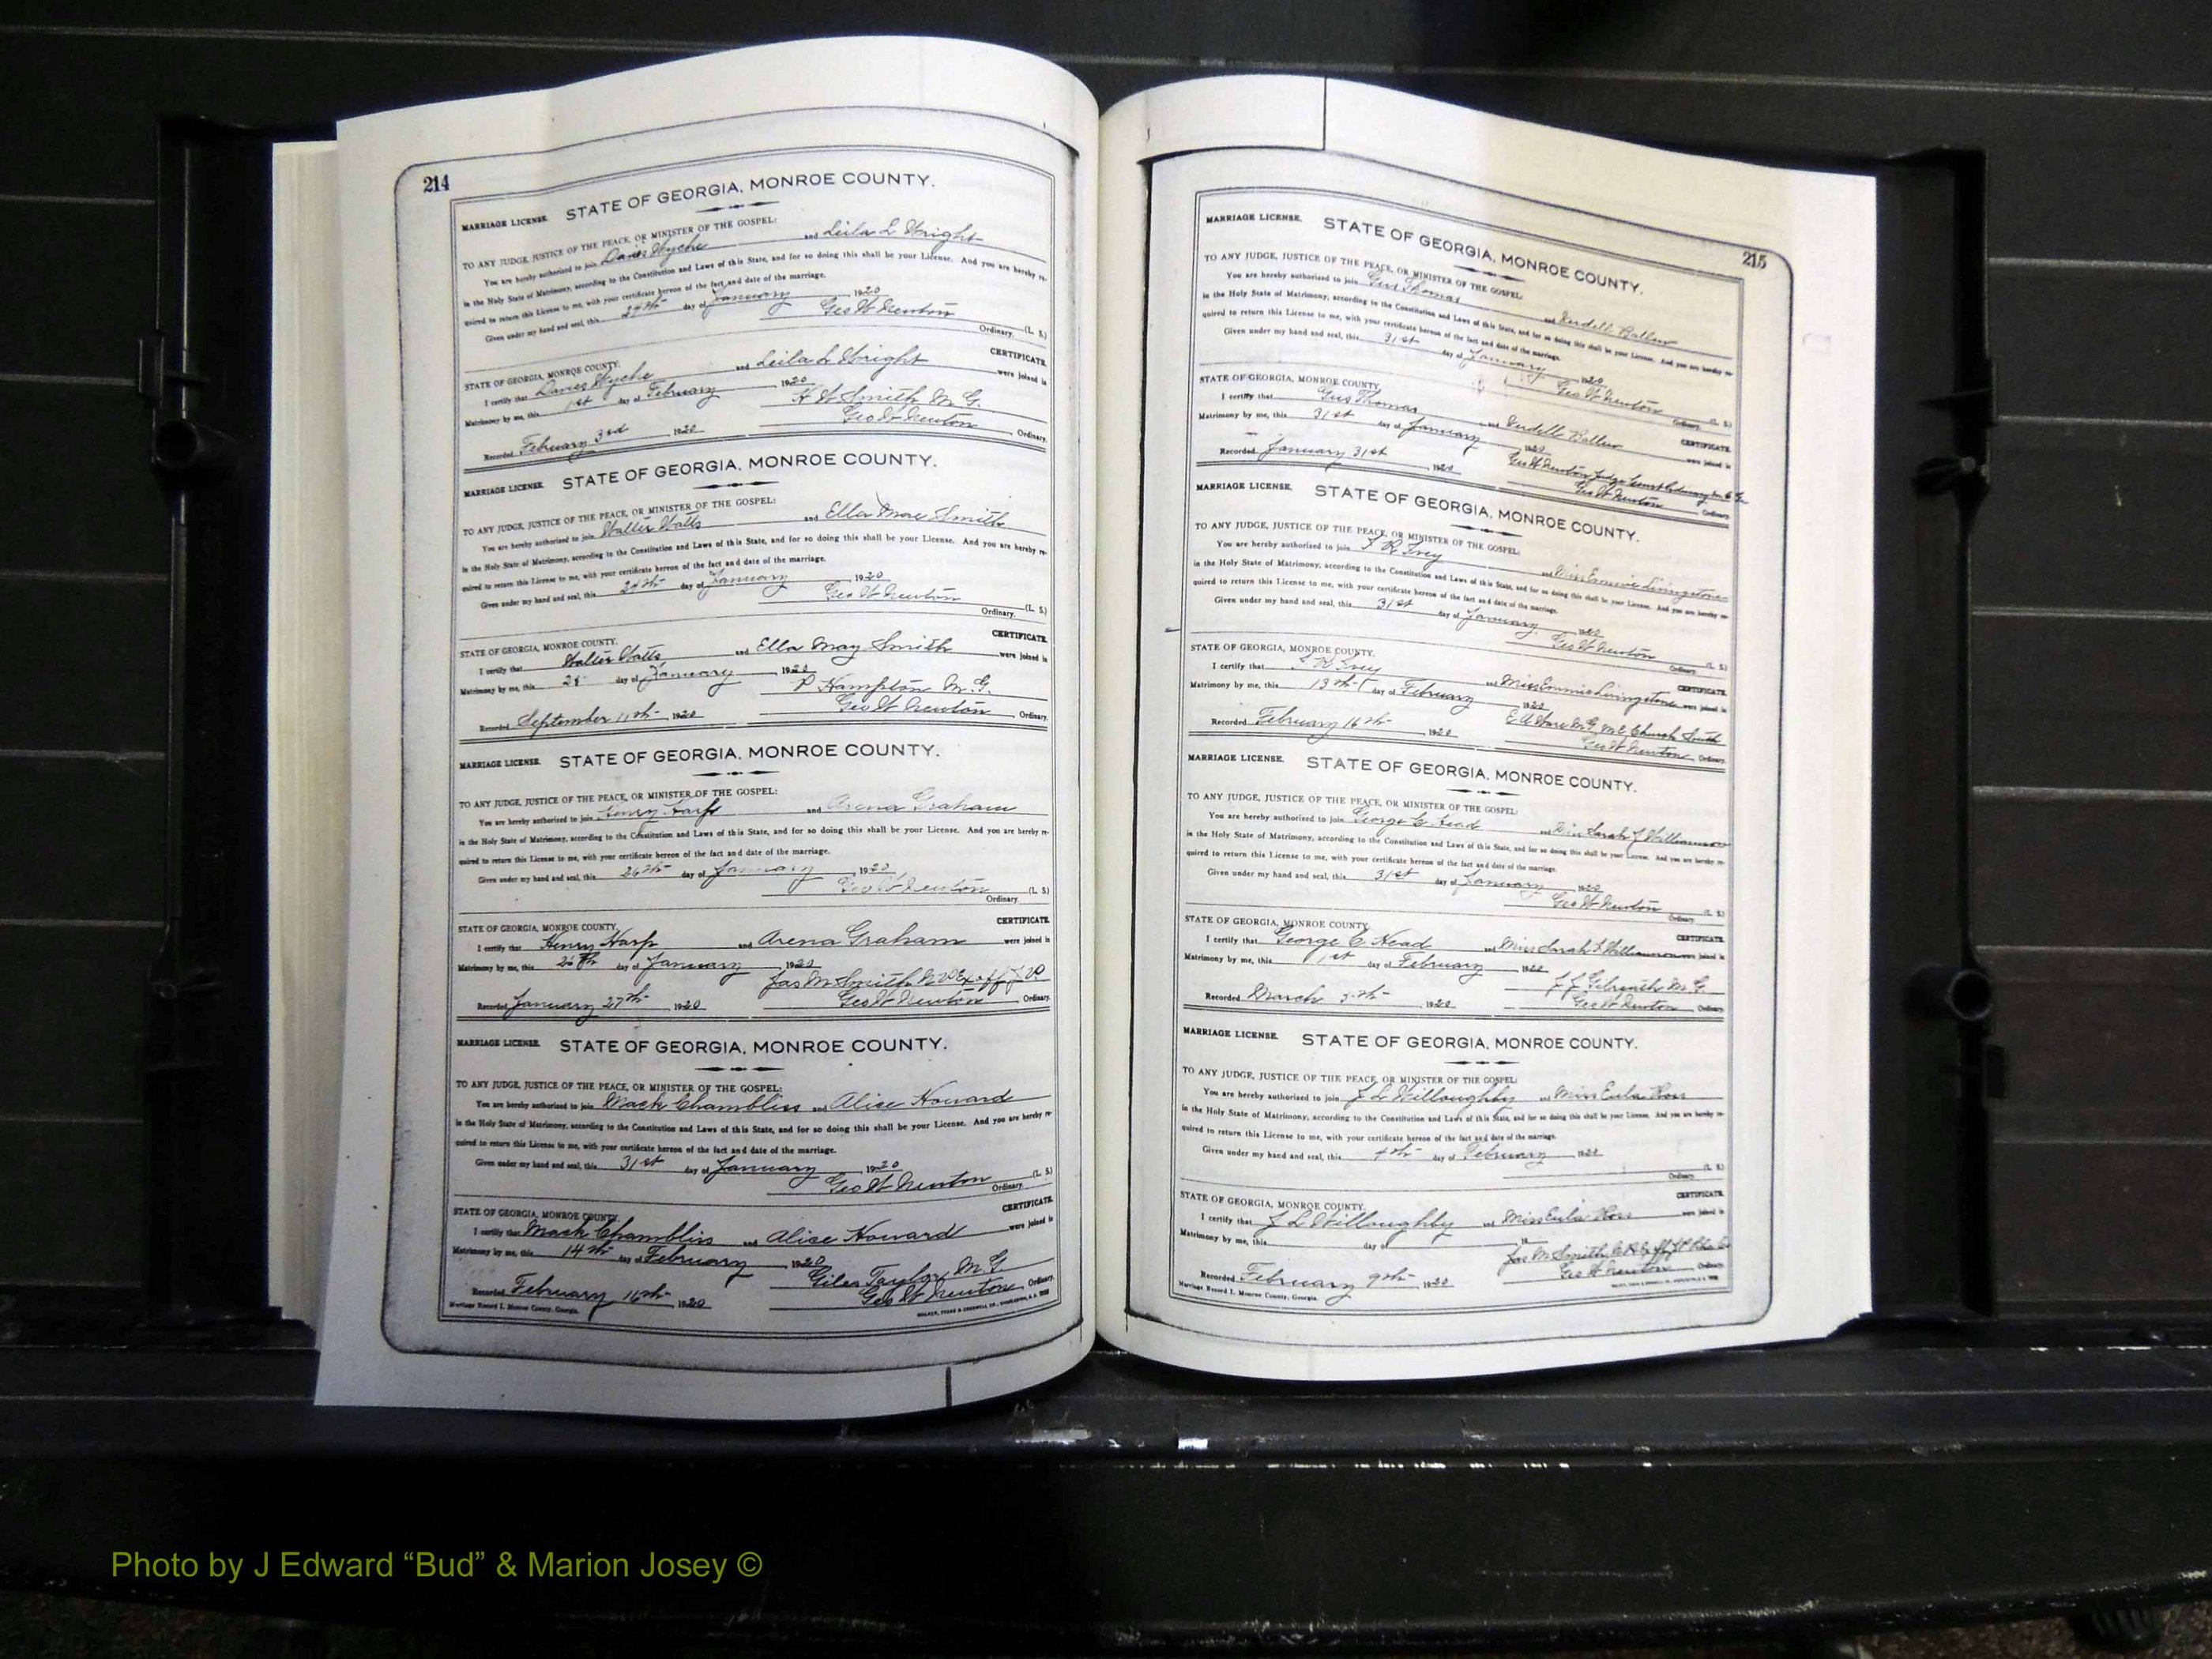 214
MARRIAGE LICENSE. STATE OF GEORGIA, MONROE COUNTY.
TO ANY JUDGE, JUSTICE OF THE PEACE, OR MINISTER OF THE GOSPEL:
You are hereby authorized to join Davis Wyche and Leila L Wright
in the Holy State of Matrimony, according to the Constitution and Laws of this State, and for so doing this shall be your License. And you are hereby re-
quired to return this License to me, with your certificate hereon of the fact and date of the marriage.
Given under my hand and seal, this 29th day of January 1920
Geo W Newton (L. S.)
Ordinary.
STATE OF GEORGIA, MONROE COUNTY. CERTIFICATE.
I certify that Davis Wyche and Leila L Wright were joined in
Matrimony by me, this 1st day of February 1920
H W Smith M. G.
Recorded February 3rd 1920 Geo W Newton Ordinary.
MARRIAGE LICENSE. STATE OF GEORGIA, MONROE COUNTY.
TO ANY JUDGE, JUSTICE OF THE PEACE, OR MINISTER OF THE GOSPEL:
You are hereby authorized to join Walter Watts and Ella Mae Smith
in the Holy State of Matrimony, according to the Constitution and Laws of this State, and for so doing this shall be your License. And you are hereby re-
quired to return this License to me, with your certificate hereon of the fact and date of the marriage.
Given under my hand and seal, this 24th day of January 1920
Geo W Newton (L. S.)
Ordinary.
STATE OF GEORGIA, MONROE COUNTY. CERTIFICATE.
I certify that Walter Watts and Ella May Smith were joined in
Matrimony by me, this 25 day of January 1920
P Hampton M. G.
Recorded September 11th 1920 Geo W Newton Ordinary.
MARRIAGE LICENSE. STATE OF GEORGIA, MONROE COUNTY.
TO ANY JUDGE, JUSTICE OF THE PEACE, OR MINISTER OF THE GOSPEL:
You are hereby authorized to join Henry Harp and Arena Graham
in the Holy State of Matrimony, according to the Constitution and Laws of this State, and for so doing this shall be your License. And you are hereby re-
quired to return this License to me, with your certificate hereon of the fact and date of the marriage.
Given under my hand and seal, this 26th day of January 1920
Geo W Newton (L. S.)
Ordinary.
STATE OF GEORGIA, MONROE COUNTY. CERTIFICATE.
I certify that Henry Harp and Arena Graham were joined in
Matrimony by me, this 26th day of January 1920
Jas M Smith N P Ex off J P
Recorded January 27th 1920 Geo W Newton Ordinary.
MARRIAGE LICENSE. STATE OF GEORGIA, MONROE COUNTY.
TO ANY JUDGE, JUSTICE OF THE PEACE, OR MINISTER OF THE GOSPEL:
You are hereby authorized to join Mack Chambliss and Alice Howard
in the Holy State of Matrimony, according to the Constitution and Laws of this State, and for so doing this shall be your License. And you are hereby re-
quired to return this License to me, with your certificate hereon of the fact and date of the marriage.
Given under my hand and seal, this 31st day of January 1920
Geo W Newton (L. S.)
Ordinary.
STATE OF GEORGIA, MONROE COUNTY. CERTIFICATE.
I certify that Mack Chambliss and Alice Howard were joined in
Matrimony by me, this 14th day of February 1920
Giles Taylor M. G.
Recorded February 16th 1920 Geo W Newton Ordinary.
Marriage Record I, Monroe County, Georgia.
215
MARRIAGE LICENSE. STATE OF GEORGIA, MONROE COUNTY.
TO ANY JUDGE, JUSTICE OF THE PEACE, OR MINISTER OF THE GOSPEL:
You are hereby authorized to join Gus Thomas and Ballew
in the Holy State of Matrimony, according to the Constitution and Laws of this State, and for so doing this shall be your License. And you are hereby re-
quired to return this License to me, with your certificate hereon of the fact and date of the marriage.
Given under my hand and seal, this 31st day of January 1920
Geo W Newton (L. S.)
Ordinary.
STATE OF GEORGIA, MONROE COUNTY. CERTIFICATE.
I certify that Gus Thomas and Ballew were joined in
Matrimony by me, this 31st day of January 1920
Geo W Newton Judge Court Ordinary
Recorded January 31st 1920 Geo W Newton Ordinary.
MARRIAGE LICENSE. STATE OF GEORGIA, MONROE COUNTY.
TO ANY JUDGE, JUSTICE OF THE PEACE, OR MINISTER OF THE GOSPEL:
You are hereby authorized to join and Miss Emmie Livingstone
in the Holy State of Matrimony, according to the Constitution and Laws of this State, and for so doing this shall be your License. And you are hereby re-
quired to return this License to me, with your certificate hereon of the fact and date of the marriage.
Given under my hand and seal, this 31st day of January 1920
Geo W Newton (L. S.)
Ordinary.
STATE OF GEORGIA, MONROE COUNTY. CERTIFICATE.
I certify that and Miss Emmie Livingstone were joined in
Matrimony by me, this 13th day of February 1920
E A Ware M G M E Church South
Recorded February 16th 1920 Geo W Newton Ordinary.
MARRIAGE LICENSE. STATE OF GEORGIA, MONROE COUNTY.
TO ANY JUDGE, JUSTICE OF THE PEACE, OR MINISTER OF THE GOSPEL:
You are hereby authorized to join George C Head and Miss Sarah J Williamson
in the Holy State of Matrimony, according to the Constitution and Laws of this State, and for so doing this shall be your License. And you are hereby re-
quired to return this License to me, with your certificate hereon of the fact and date of the marriage.
Given under my hand and seal, this 31st day of January 1920
Geo W Newton (L. S.)
Ordinary.
STATE OF GEORGIA, MONROE COUNTY. CERTIFICATE.
I certify that George C Head and Miss Sarah J Williamson were joined in
Matrimony by me, this 1st day of February 1920
J J Gilreath M. G.
Recorded March 5th 1920 Geo W Newton Ordinary.
MARRIAGE LICENSE. STATE OF GEORGIA, MONROE COUNTY.
TO ANY JUDGE, JUSTICE OF THE PEACE, OR MINISTER OF THE GOSPEL:
You are hereby authorized to join J L Willoughby and Miss Eula
in the Holy State of Matrimony, according to the Constitution and Laws of this State, and for so doing this shall be your License. And you are hereby re-
quired to return this License to me, with your certificate hereon of the fact and date of the marriage.
Given under my hand and seal, this 4th day of February 1920
(L. S.)
Ordinary.
STATE OF GEORGIA, MONROE COUNTY. CERTIFICATE.
I certify that J L Willoughby and Miss Eula were joined in
Matrimony by me, this day of 19
Jas M Smith
Recorded February 9th 1920 Geo W Newton Ordinary.
Marriage Record I, Monroe County, Georgia.
Photo by J Edward “Bud” & Marion Josey ©